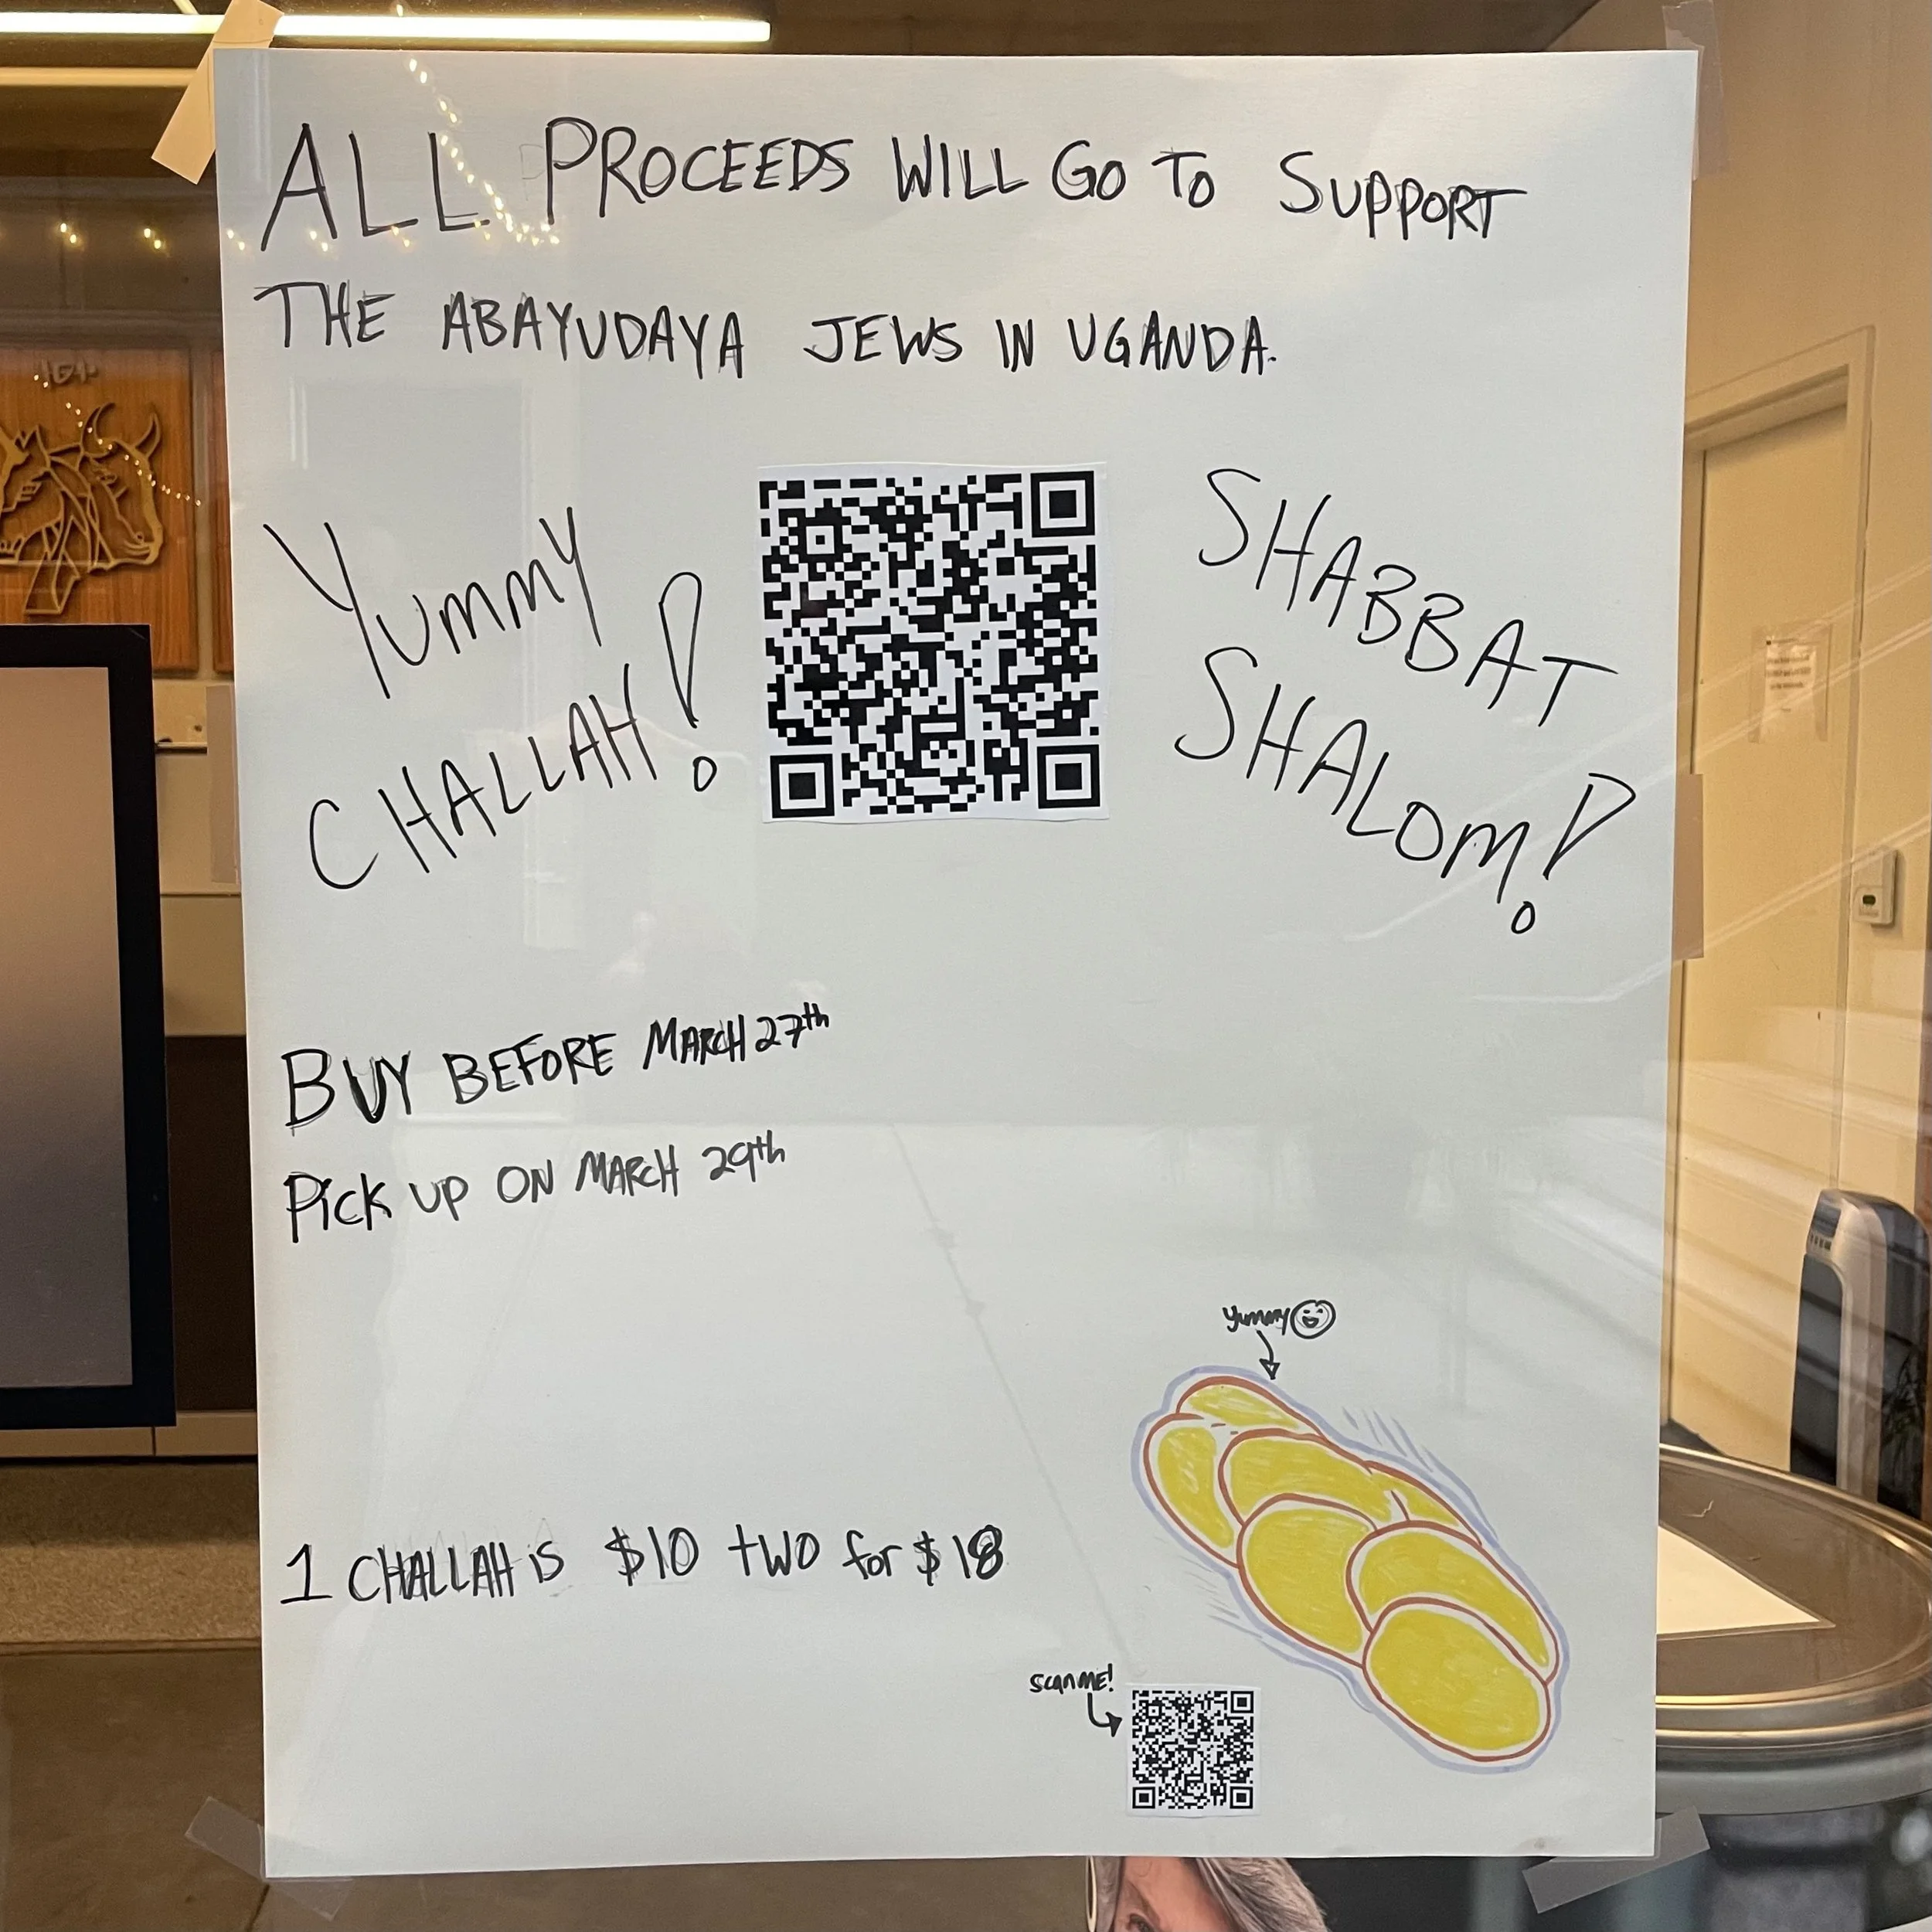 ALL PROCEEDS WILL GO TO SUPPORT
THE ABAYUDAYA JEWS IN UGANDA.
Yummy
CHALLAH!
SHABBAT
SHALOM!
BUY BEFORE MARCH 27th
Pick UP ON MARCH 29th
yummy
1 CHALLAH is $10 two for $18
scan ME!